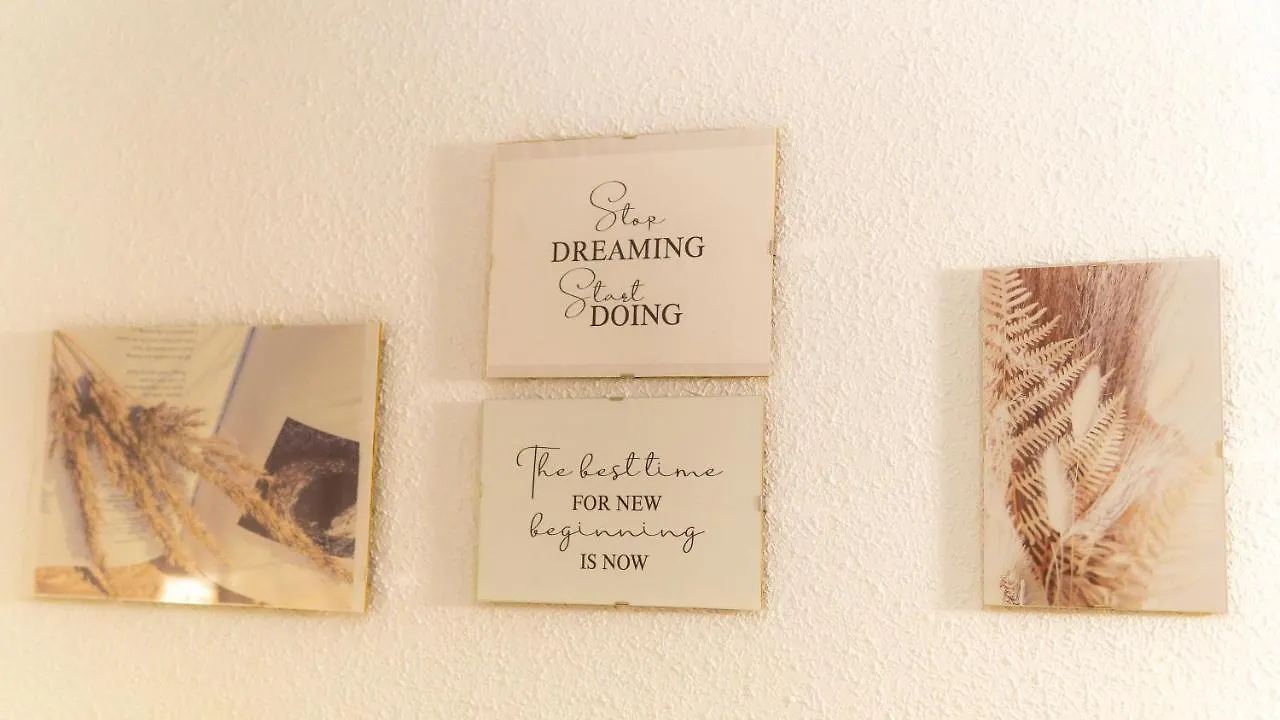 Stop
DREAMING
Start
DOING
The best time
FOR NEW
beginning
IS NOW